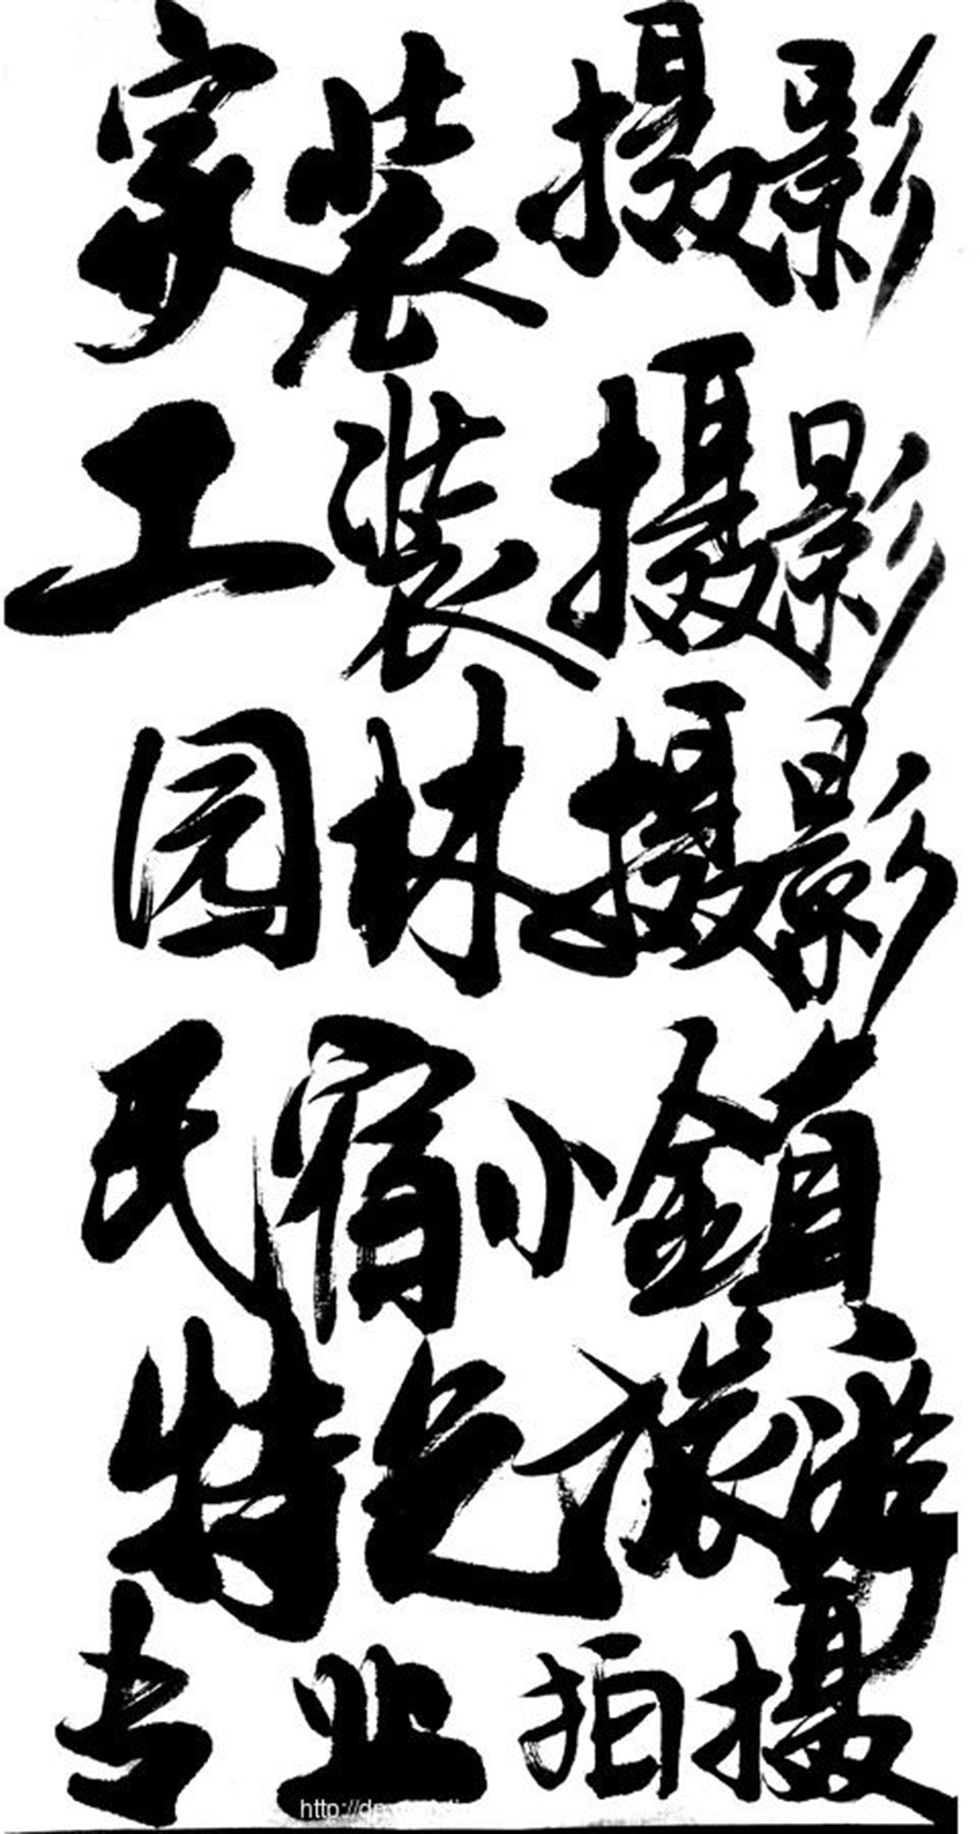 家装摄影
工装摄影
园林摄影
民宿小鎮
特色旅游
专业拍摄